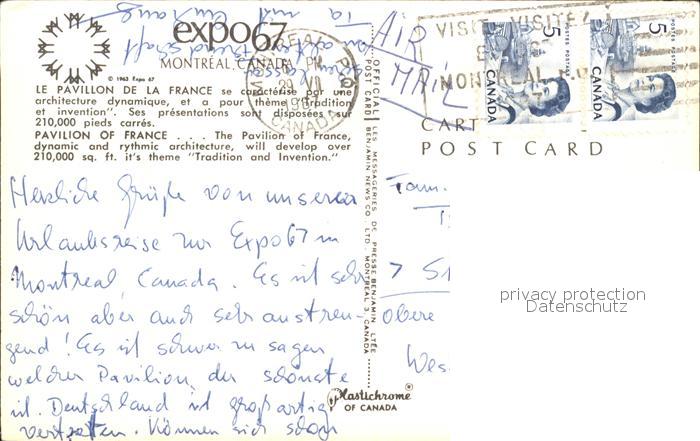 expo67
MONTRÉAL, CANADA
© 1963 Expo 67
LE PAVILLON DE LA FRANCE se caractérise par une
architecture dynamique, et a pour thème "Tradition
et invention". Ses présentations sont disposées sur
210,000 pieds carrés.
PAVILION OF FRANCE . . . The Pavilion of France,
dynamic and rythmic architecture, will develop over
210,000 sq. ft. it's theme "Tradition and Invention."
Herzliche Grüße von unserer
Urlaubsreise zur Expo 67 in
Montreal, Canada. Es ist sehr
schön aber auch sehr anstren-
gend! Es ist schwer zu sagen
welcher Pavilion der schönste
ist. Deutschland ist großartig
vertreten. Können sich schon
OFFICIAL POST CARD
LES MESSAGERIES DE PRESSE BENJAMIN LTÉE
BENJAMIN NEWS CO. LTD. MONTREAL 3, CANADA
Plastichrome®
OF CANADA
AIR
MAIL
MONTREAL P.Q.
PM
29 VII
CANADA
VISIT VISITEZ
MONTREAL
5
POSTES POSTAGE
CANADA
5
POSTES POSTAGE
CANADA
CART
POST CARD
Fam.
7 S
obere
Wes
privacy protection
Datenschutz